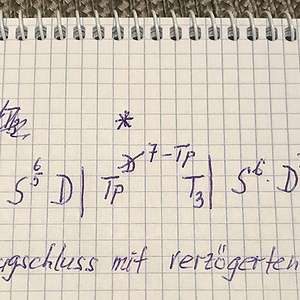 *
S 6 5 D | Tp D 7 - Tp T 3 | S 6 . D
gschluss mit verzögerten